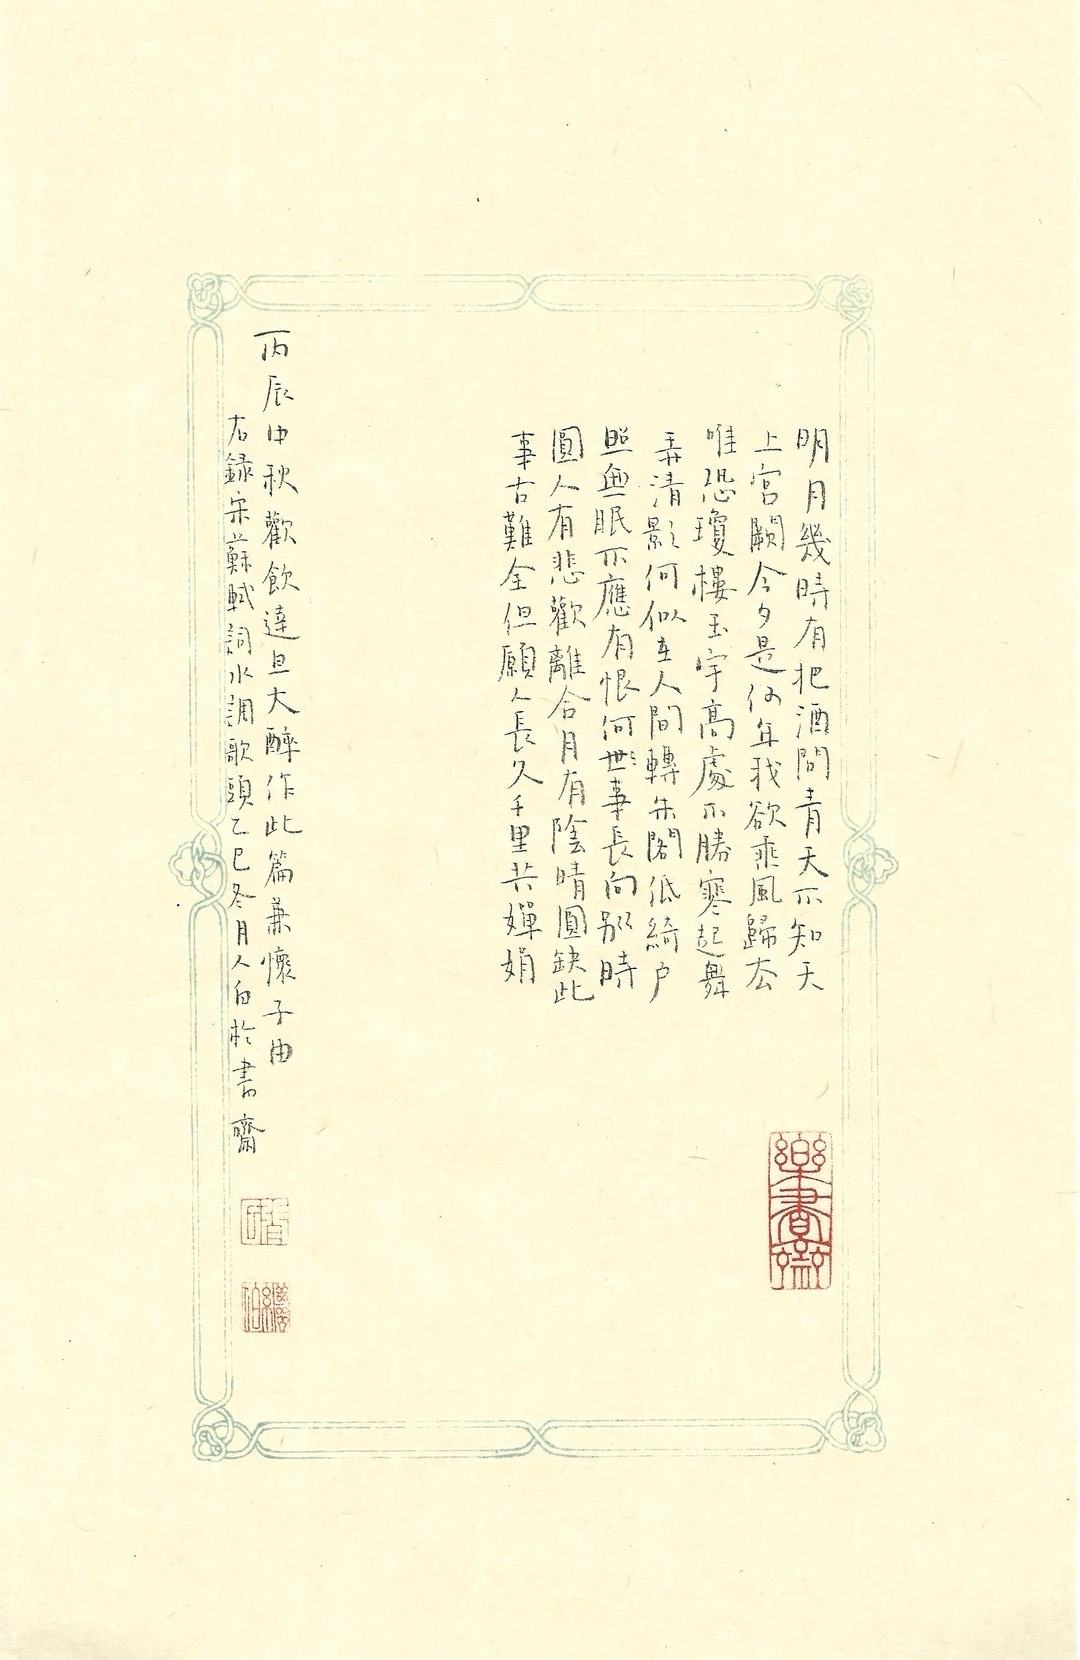 明月幾時有把酒問青天不知天
上宮闕今夕是何年我欲乘風歸去
唯恐瓊樓玉宇高處不勝寒起舞
弄清影何似在人間轉朱閣低綺户
照無眠不應有恨何世事長向別時
圓人有悲歡離合月有陰晴圓缺此
事古難全但願人長久千里共嬋娟
樂書齋
丙辰中秋歡飲達旦大醉作此篇兼懷子由
右録宋蘇軾詞水調歌頭乙巳冬月人白於書齋